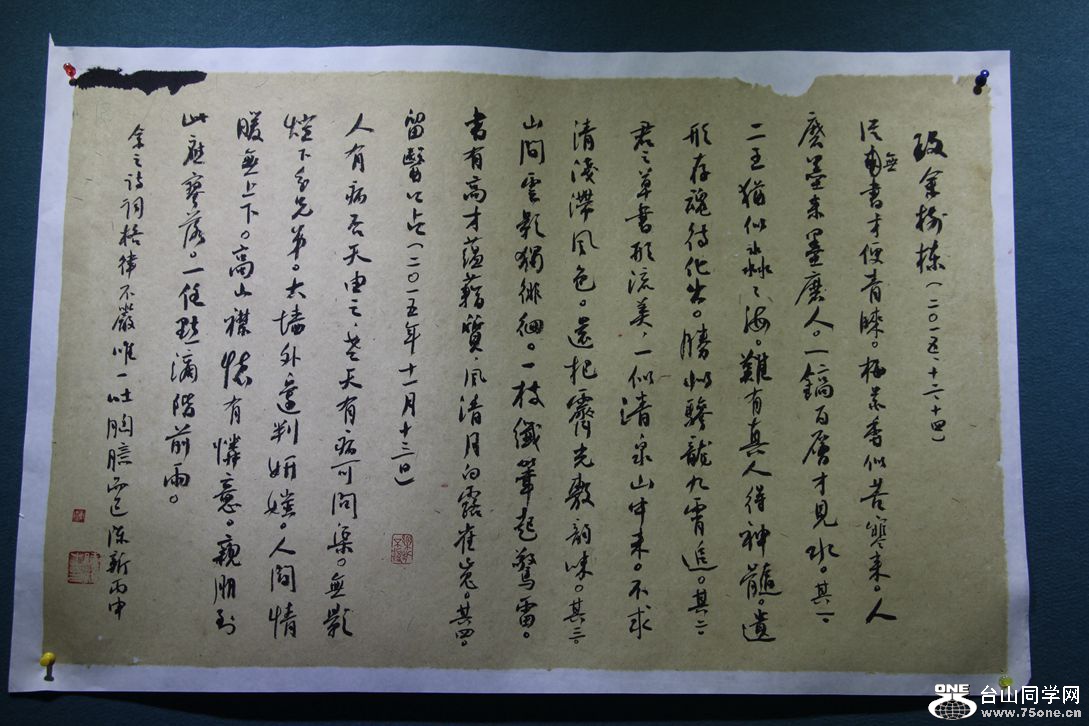 致余树栋(二〇一五、十二、十四)
從無書才便青睞。梅蕊香似苦寒来。人
磨墨来墨磨人。一鎬百層才見水。其一、
二王猶似淼々海。難有真人得神髓。遺
形存魂待化出。勝似驂龍九霄追。其二、
君之草書形流美，一似清泉山中来。不求
清淺滯風色。還把霽光敷韵味。其三。
山間雲影獨徘徊。一枝纖筆起驚雷。
書有高才蘊藉質，風清月白露崔嵬。其四。
留醫口占(二〇一五年十一月十三日)
人有病否天由之，天有病可問渠。無影
燈下多兄弟。太墙外邊判妍媸。人間情
暖無上下。高山襟懷有憐意。親朋到
此應寥落。一任點滴階前雨。
余之詩詞格律不嚴唯一吐胸臆而已陈新丙申
ONE
台山同学网
www.75one.cn